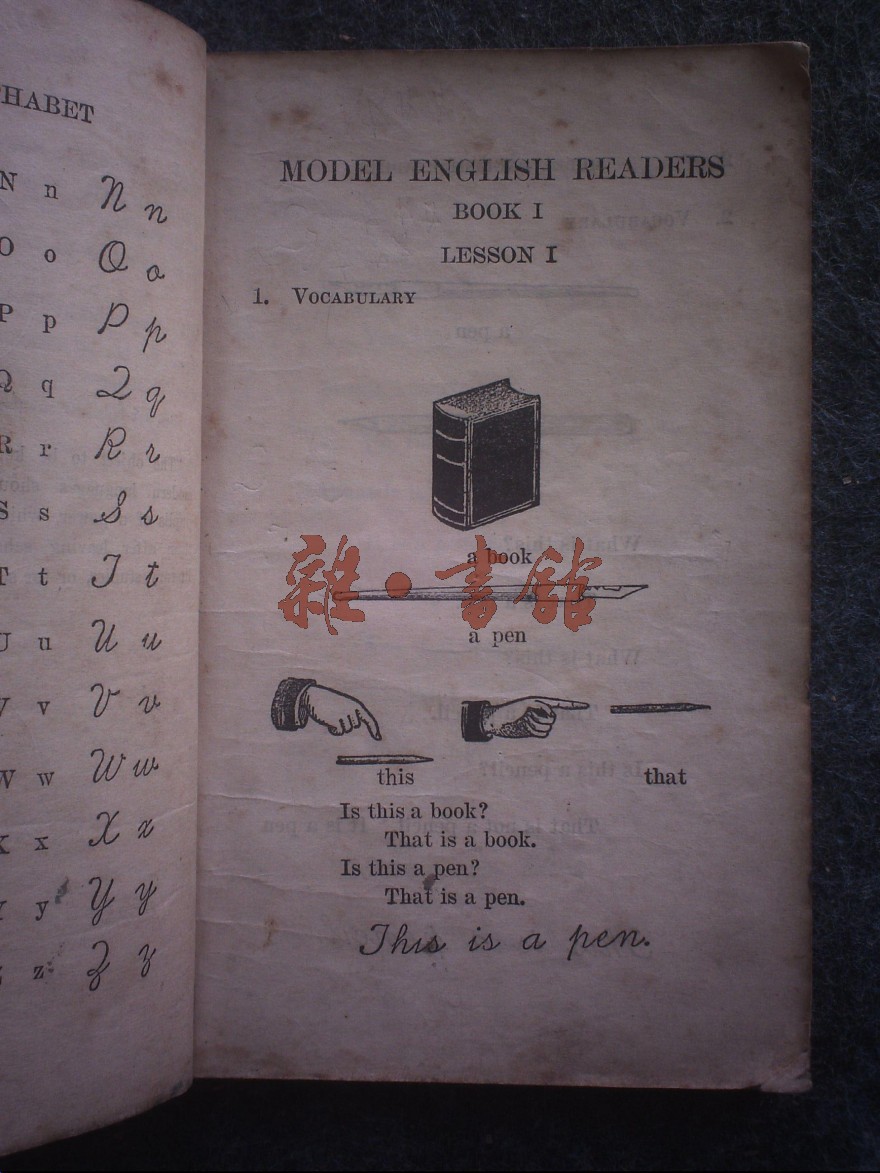 HABET
N n N n
O o O o
P p P p
Q q Q q
R r R r
S s S s
T t T t
U u U u
V v V v
W w W w
X x X x
Y y Y y
z z Z z
MODEL ENGLISH READERS
BOOK I
LESSON I
1. VOCABULARY
a book
雜·書館
a pen
this that
Is this a book?
That is a book.
Is this a pen?
That is a pen.
This is a pen.